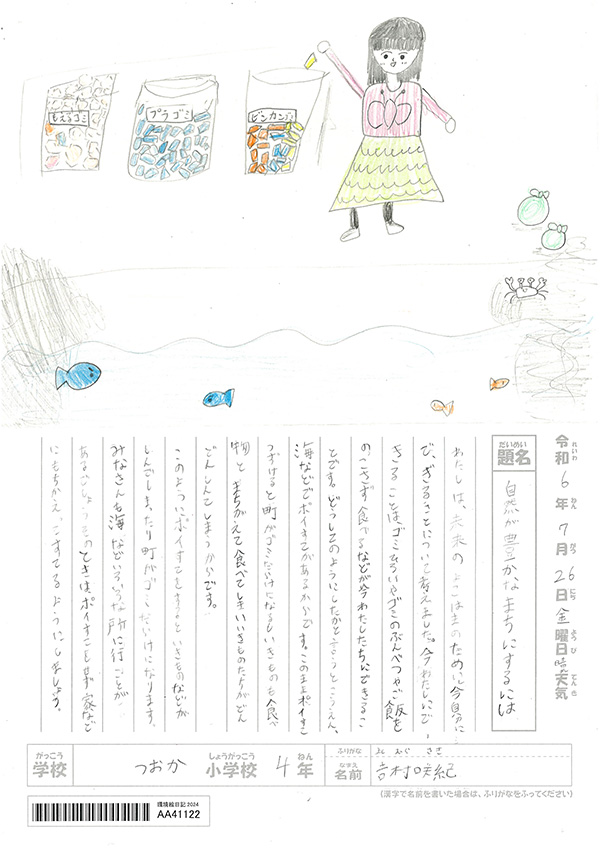 もえるゴミ
プラゴミ
ビンカン
令和6年7月26日金曜日 天気 晴
れいわ ねん がつ にち ようび てんき
だいめい
題名
自然が豊かなまちにするには
わたしは、未来のよこはまのために今自分に
で、きることについて考えました。今わたしにで
きることはゴミひろいやゴミのぶんべつやご飯を
のこさず食べるなどが今わたしたちにできるこ
とです。どうしてそのようにしたかと言うとこうえん、
海などでポイすてがあるからです。このままポイすて
つづけると町がゴミだらけになるしいきものも食べ
物とまちがえて食べてしまいいきものたちがどん
どんしんでしまうからです。
このようにポイすてをすると いきものなどが
しんでしまったり町がゴミだらけになります。
みなさんも海などいろいろな所に行ことが
あるでしょう。そのときはポイすてせず家など
にもちかえってすてるようにしましょう。
がっこう
学校
つおか
しょうがっこう
小学校
4
ねん
年
ふりがな
よしむら さき
なまえ
名前
吉村咲紀
(漢字で名前を書いた場合は、ふりがなをふってください)
環境絵日記2024
AA41122